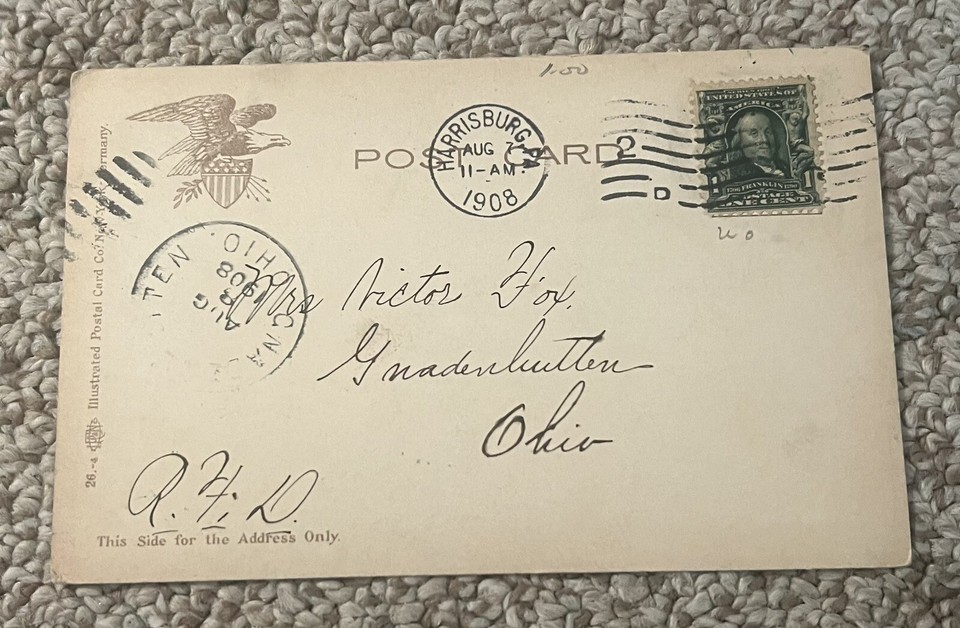 1.00
POST CARD
HARRISBURG, PA.
AUG 7
11-AM.
1908
2
D
SERIES 1902
UNITED STATES OF
AMERICA
1706 FRANKLIN 1790
POSTAGE
ONE CENT
GNA TEN. OHIO.
AUG
8
1908
Mrs Victor Fox,
Gnadenhutten
Ohio
R. F. D.
This Side for the Address Only.
26.-4 Illustrated Postal Card Co. New York Germany.